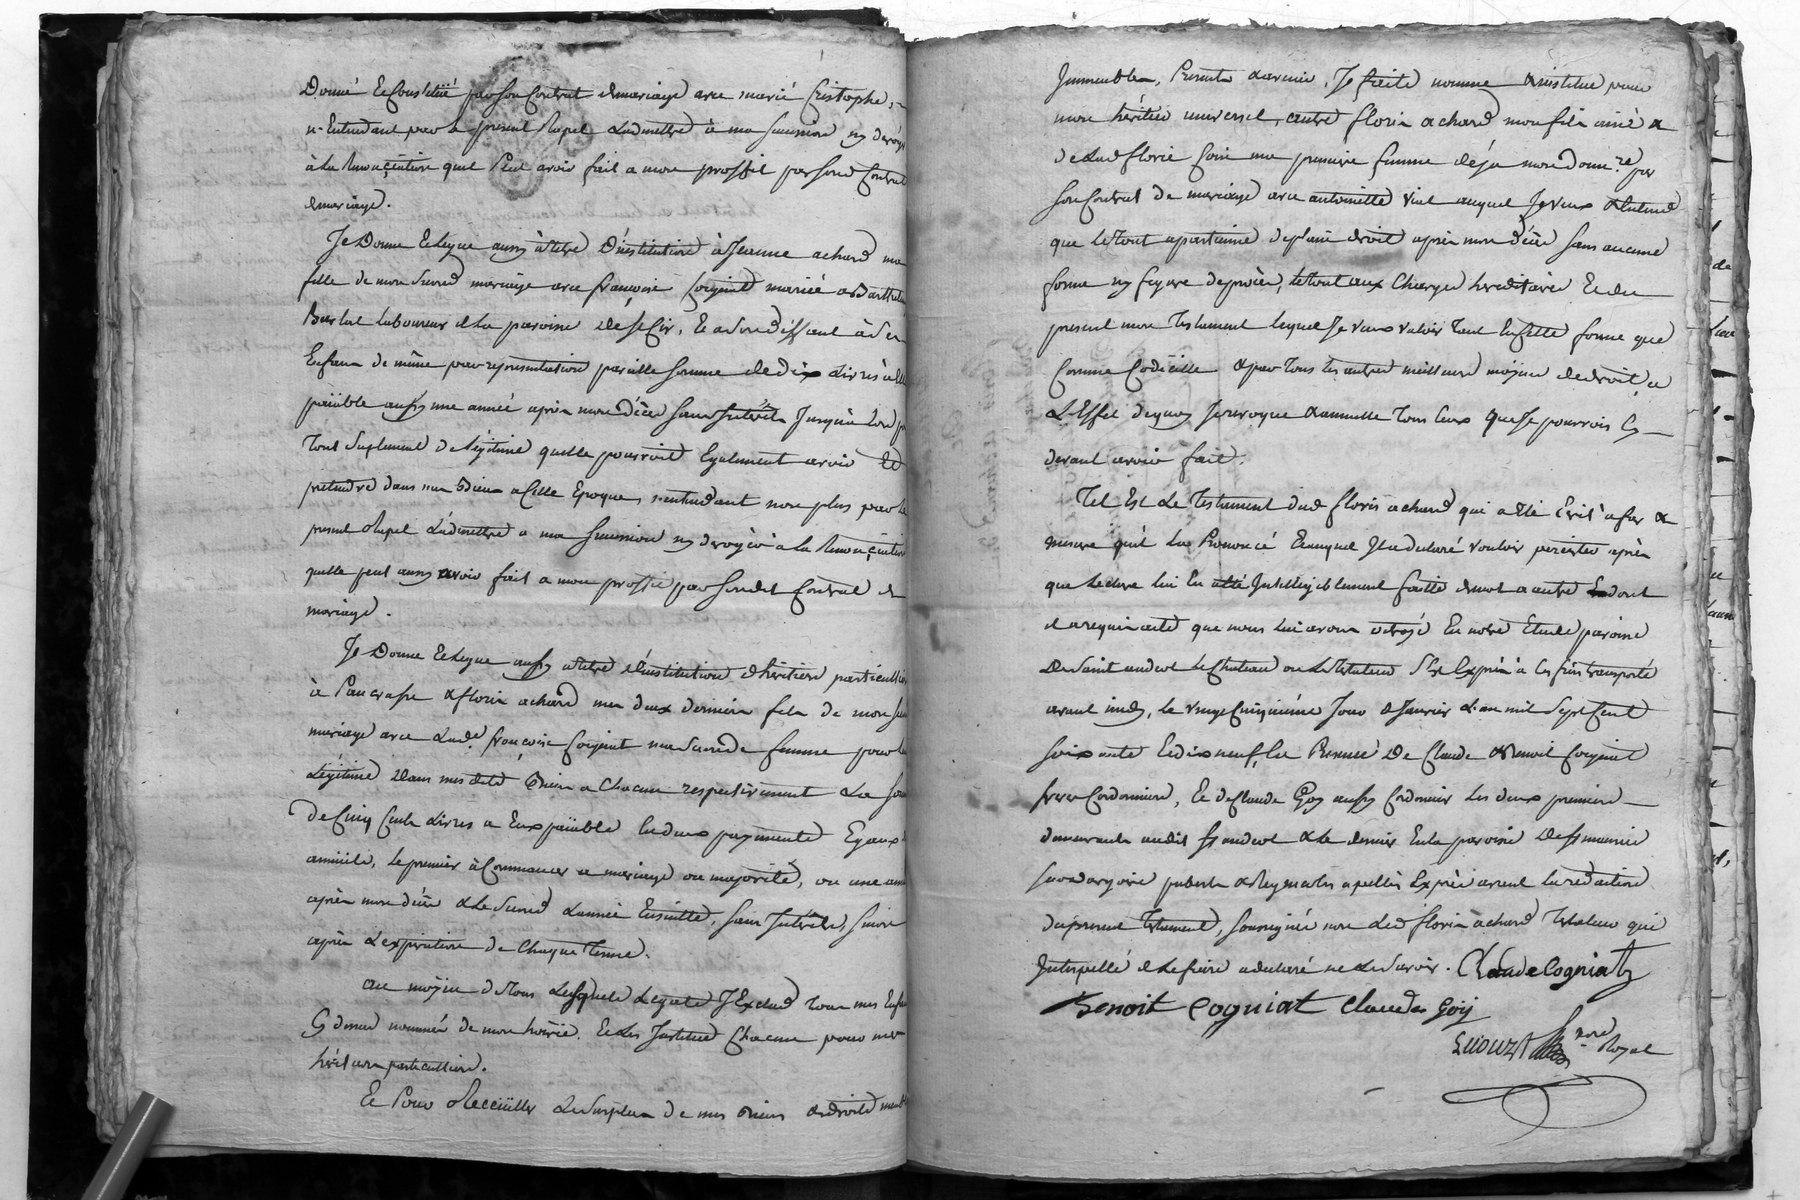 Donné et Constitué par son Contrat de mariage avec marie Cristophe,
n'Entendant par le present Rapel L'admettre à ma succession ny déroger
à la Renonciation quil Peut avoir fait a mon proffit par sond Contrat
de mariage.
Je Donne et Legue aussy à titre D'institution à Jeanne achard ma
fille de mon Second mariage avec françoise Cogniat mariée a Barthelemy
laboureur de la paroisse de St Cir, et a son deffaut à ses
Enfans de même par representation pareille somme de dix Livres à elle
païable aussy une année après mon décès sans Interets Jusqu'à Lors pour
Tout Suplement de Légitime quelle pourroit Egalement avoir et
prétendre dans mes Biens a Cette Epoque, n'entendant non plus par le
present Rapel L'admettre a ma succession ny déroger à la Renonciation
quelle peut aussy avoir fait a mon proffit par sondit Contrat de
mariage.
Je Donne et Legue aussy a titre d'institution d'héritiers particulliers
à Pancrasse & floris achard mes deux derniers fils de mon second
mariage avec Lade françoise Cogniat ma seconde femme pour
Légitime dans mesdits Biens a Chacun respectivement La somme
De Cinq Cents Livres a Eux païable en deux payements Egaux &
annuels, le premier à Commancer a mariage ou majorité, ou une année
après mon décès & Le Second L'année Ensuitte, sans Intérêts, sinon
après L'expiration de Chaque Terme.
au moyen de Tous Lesquels Legats J'Exclud tous mes Enfans
Cy dessus nommés de mon hoirie, et Les Institue Chacun pour mes
héritiers particulliers.
Et Pour Recueüllir Le Surplus de mes Biens & droits meubles
Immeubles, Presents & avenir, Je faits nomme & institue pour
mon héritier universel, autre floris achard mon fils ainé &
de Lad florie ma premiere femme déja mon donnre par
son Contrat de mariage avec antoinette Vial auquel Je veux & Entend
que le tout apartienne de plein droit après mon décès sans aucune
forme ny figure de procès, le tout aux Charges héréditaires Et du
present mon Testament lequel Je veux valoir Tant En Cette forme que
Comme Codicille & par tous les autres meilleurs moyens de droit, a
L'Effet de quoy Je revoque & annulle Tous Ceux que Je pourrois Cy
devant avoir fait.
Tel Est Le Testament dud floris achard qui a été Ecrit à fur &
mesure quil La Prononcé Et auquel Il a declaré vouloir persister après
que lecture lui En a été Intelligiblement faitte de mot a autre Et dont
il a requis acte que nous lui avons octroyé En notre Etude paroisse
de Saint andeol le Chateau ou Le testateur s'est Exprès à Ces fins transporté
avant midy, le vingt Cinquième Jour de Janvier L'an mil Sept Cent
soixante et dix neuf, En Presence De Claude & Benoit Cogniat
freres Cordonniers, et de Claude Goy aussy Cordonnier les deux premiers
demeurants audit St andeol & Le dernier En la paroisse de St maurice
sur dargoire puberts & Regnicoles apellés Exprès avant la redaction
du present testament, soussignés non Led floris achard testateur qui
Interpellé de Le faire a declaré ne Le savoir. Claude Cogniat
Benoit Cogniat Claude Goy
nore Royal